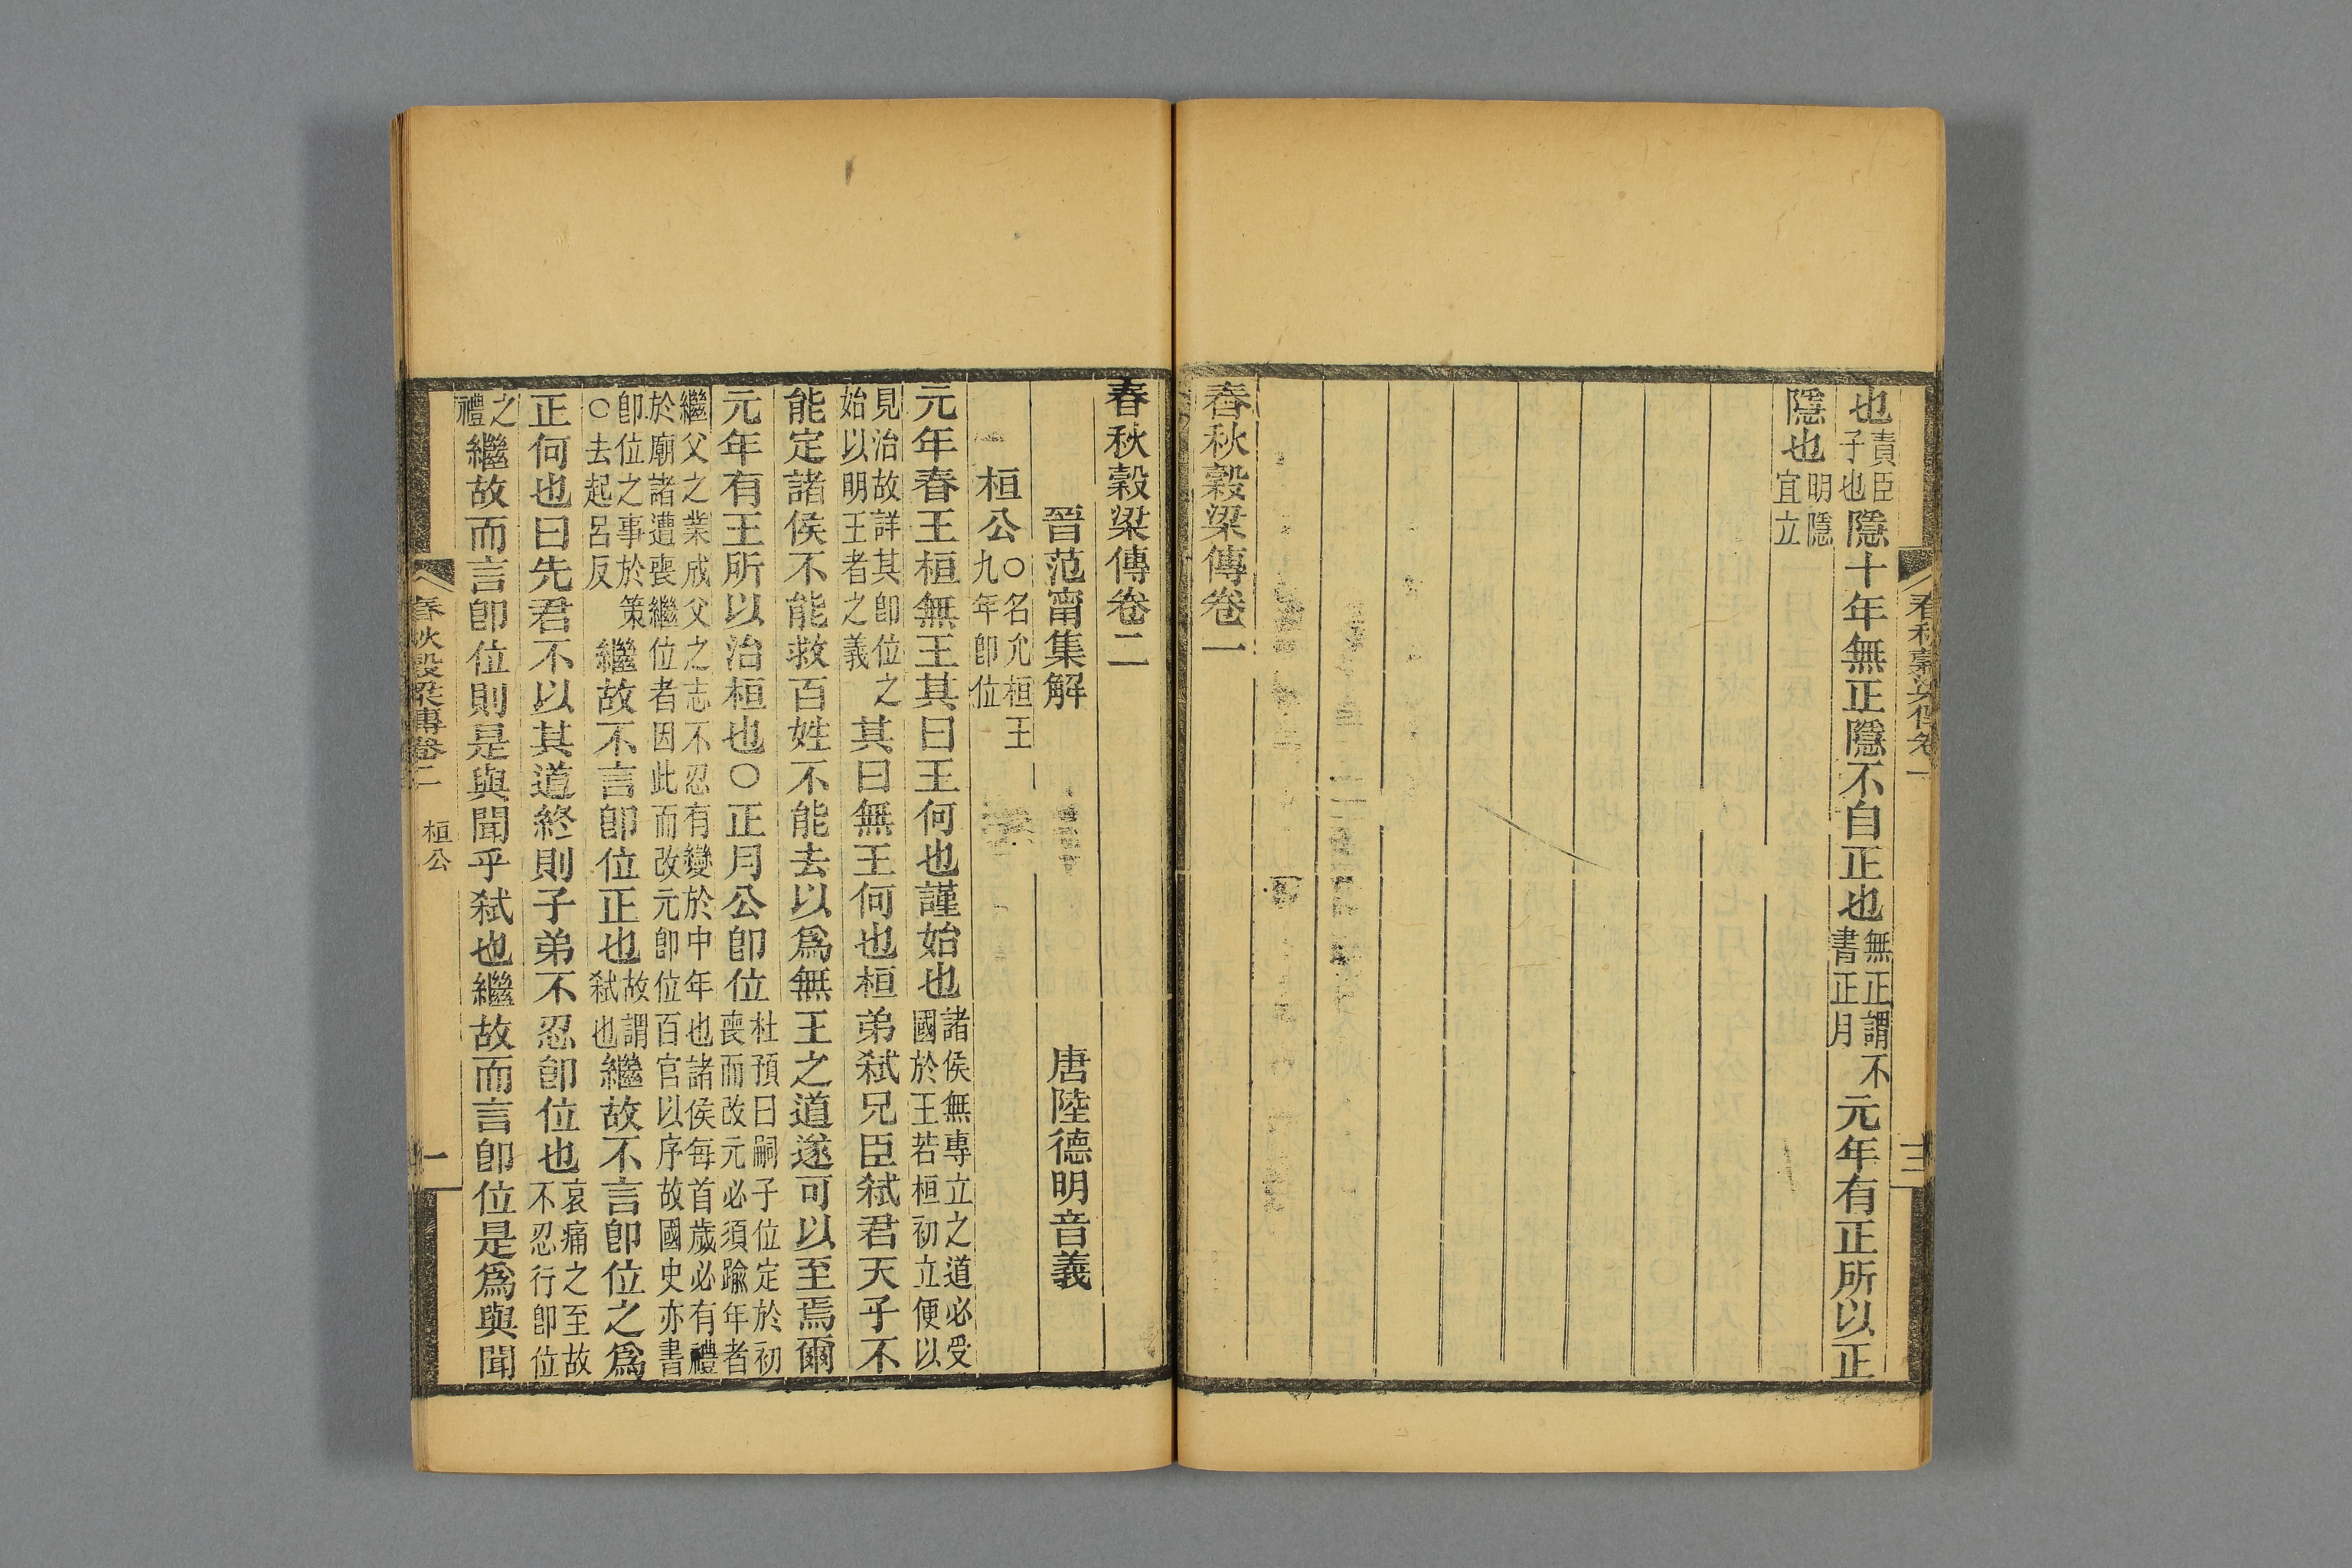 也責臣子也隱十年無正隱不自正也無正謂不書正月元年有正所以正
隱也明隱宜立
春秋穀梁傳卷一
春秋穀梁傳卷一
春秋穀梁傳卷二
晉范甯集解 唐陸德明音義
桓公○名允桓王九年卽位
元年春王桓無王其曰王何也謹始也諸侯無專立之道必受國於王若桓初立便以
見治故詳其卽位之始以明王者之義其曰無王何也桓弟弑兄臣弑君天子不
能定諸侯不能救百姓不能去以爲無王之道遂可以至焉爾
元年有王所以治桓也○正月公卽位杜預曰嗣子位定於初喪而改元必須踰年者
繼父之業成父之志不忍有變於中年也諸侯每首歲必有禮於廟諸遭喪繼位者因此而改元卽位百官以序故國史亦書
卽位之事於策○去起呂反繼故不言卽位正也故謂弑也繼故不言卽位之爲
正何也曰先君不以其道終則子弟不忍卽位也哀痛之至故不忍行卽位
之禮繼故而言卽位則是與聞乎弑也繼故而言卽位是爲與聞
春秋穀梁傳卷二 桓公 一